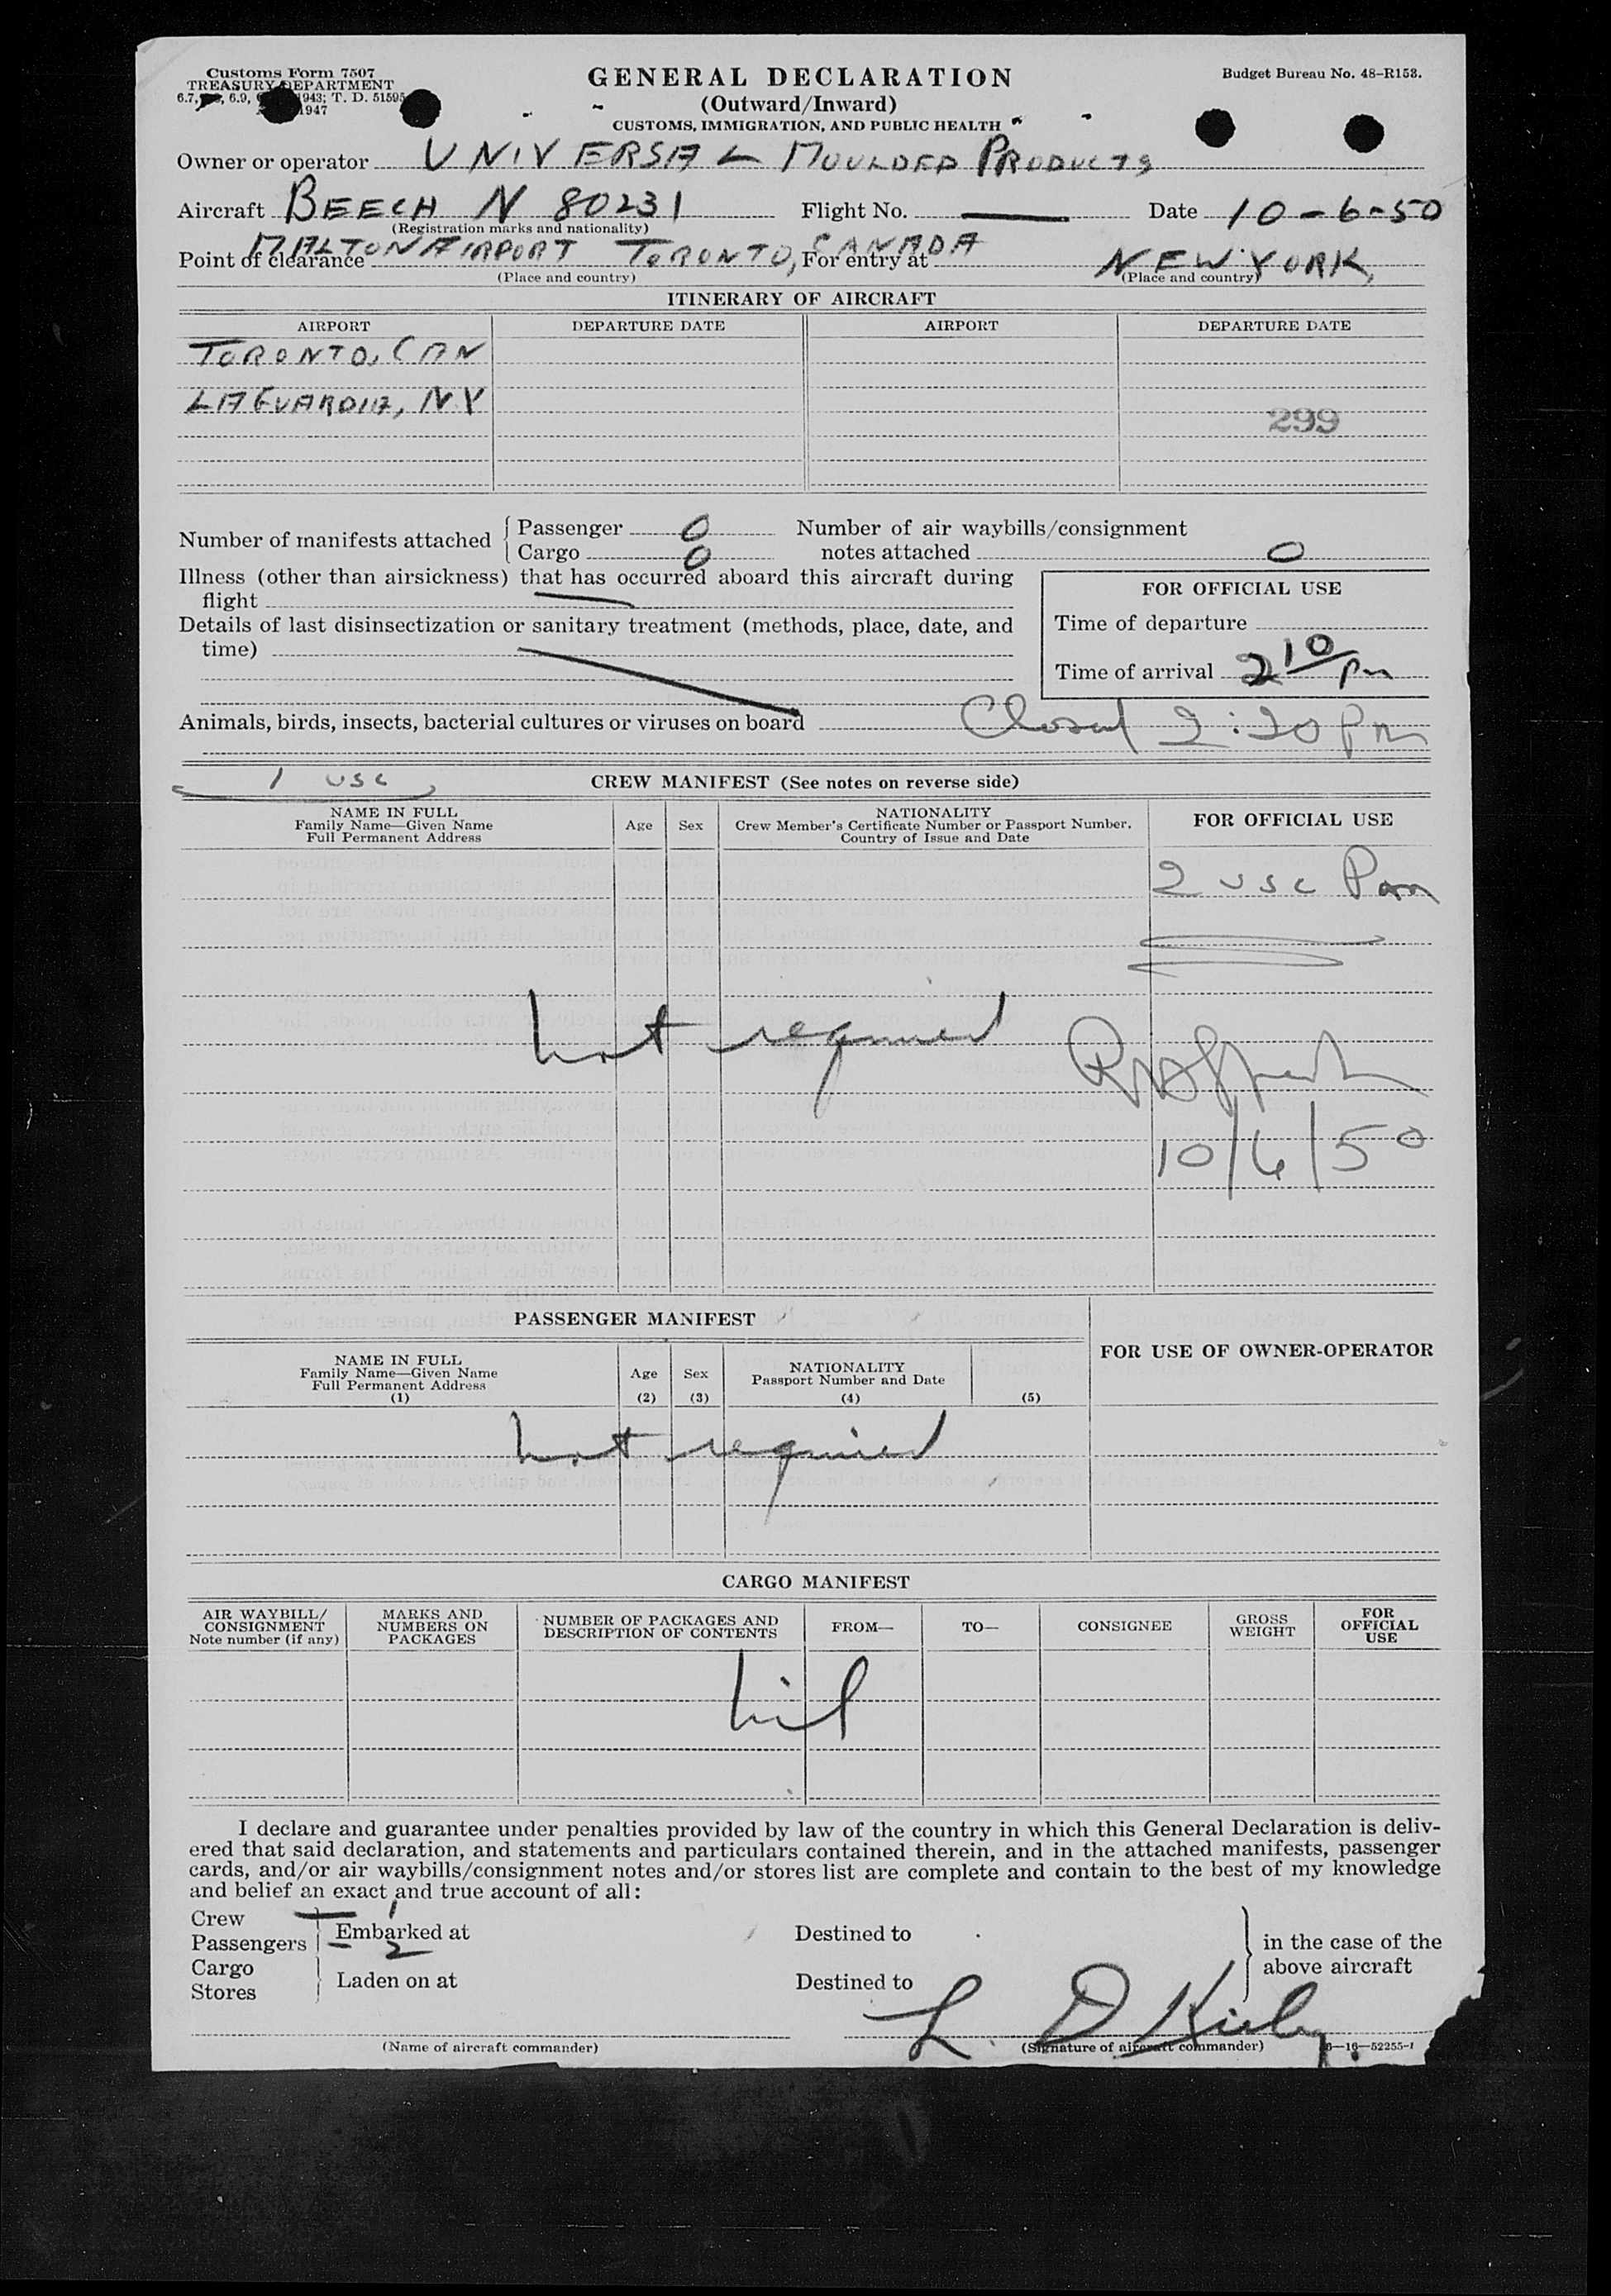 Customs Form 7507
TREASURY DEPARTMENT
6.7, 6.9, 1943; T. D. 51595
1947
GENERAL DECLARATION
(Outward/Inward)
CUSTOMS, IMMIGRATION, AND PUBLIC HEALTH
Budget Bureau No. 48–R153.
Owner or operator UNIVERSAL MOULDED PRODUCTS
Aircraft BEECH N 80231 Flight No. — Date 10-6-50
(Registration marks and nationality)
Point of clearance MALTON AIRPORT TORONTO, CANADA For entry at NEW YORK,
(Place and country) (Place and country)
ITINERARY OF AIRCRAFT
AIRPORT DEPARTURE DATE AIRPORT DEPARTURE DATE
TORONTO, CAN
LAGUARDIA, N.Y
299
Number of manifests attached { Passenger 0 Number of air waybills/consignment
Cargo 0 notes attached 0
Illness (other than airsickness) that has occurred aboard this aircraft during
flight —
FOR OFFICIAL USE
Details of last disinsectization or sanitary treatment (methods, place, date, and
time)
Time of departure
Time of arrival 2 10 pm
Animals, birds, insects, bacterial cultures or viruses on board
Closed 2:20 Pm
1 usc
CREW MANIFEST (See notes on reverse side)
NAME IN FULL
Family Name—Given Name
Full Permanent Address
Age Sex
NATIONALITY
Crew Member's Certificate Number or Passport Number.
Country of Issue and Date
FOR OFFICIAL USE
2 usc
not required
10/6/50
PASSENGER MANIFEST
FOR USE OF OWNER-OPERATOR
NAME IN FULL
Family Name—Given Name
Full Permanent Address
(1)
Age
(2)
Sex
(3)
NATIONALITY
Passport Number and Date
(4) (5)
not required
CARGO MANIFEST
AIR WAYBILL/
CONSIGNMENT
Note number (if any)
MARKS AND
NUMBERS ON
PACKAGES
NUMBER OF PACKAGES AND
DESCRIPTION OF CONTENTS
FROM—
TO—
CONSIGNEE
GROSS
WEIGHT
FOR
OFFICIAL
USE
nil
I declare and guarantee under penalties provided by law of the country in which this General Declaration is deliv-
ered that said declaration, and statements and particulars contained therein, and in the attached manifests, passenger
cards, and/or air waybills/consignment notes and/or stores list are complete and contain to the best of my knowledge
and belief an exact and true account of all:
Crew 1
Passengers 2
Embarked at Destined to
Cargo
Stores
Laden on at Destined to
in the case of the
above aircraft
L. D Kirby
(Name of aircraft commander) (Signature of aircraft commander) 16—52255-1